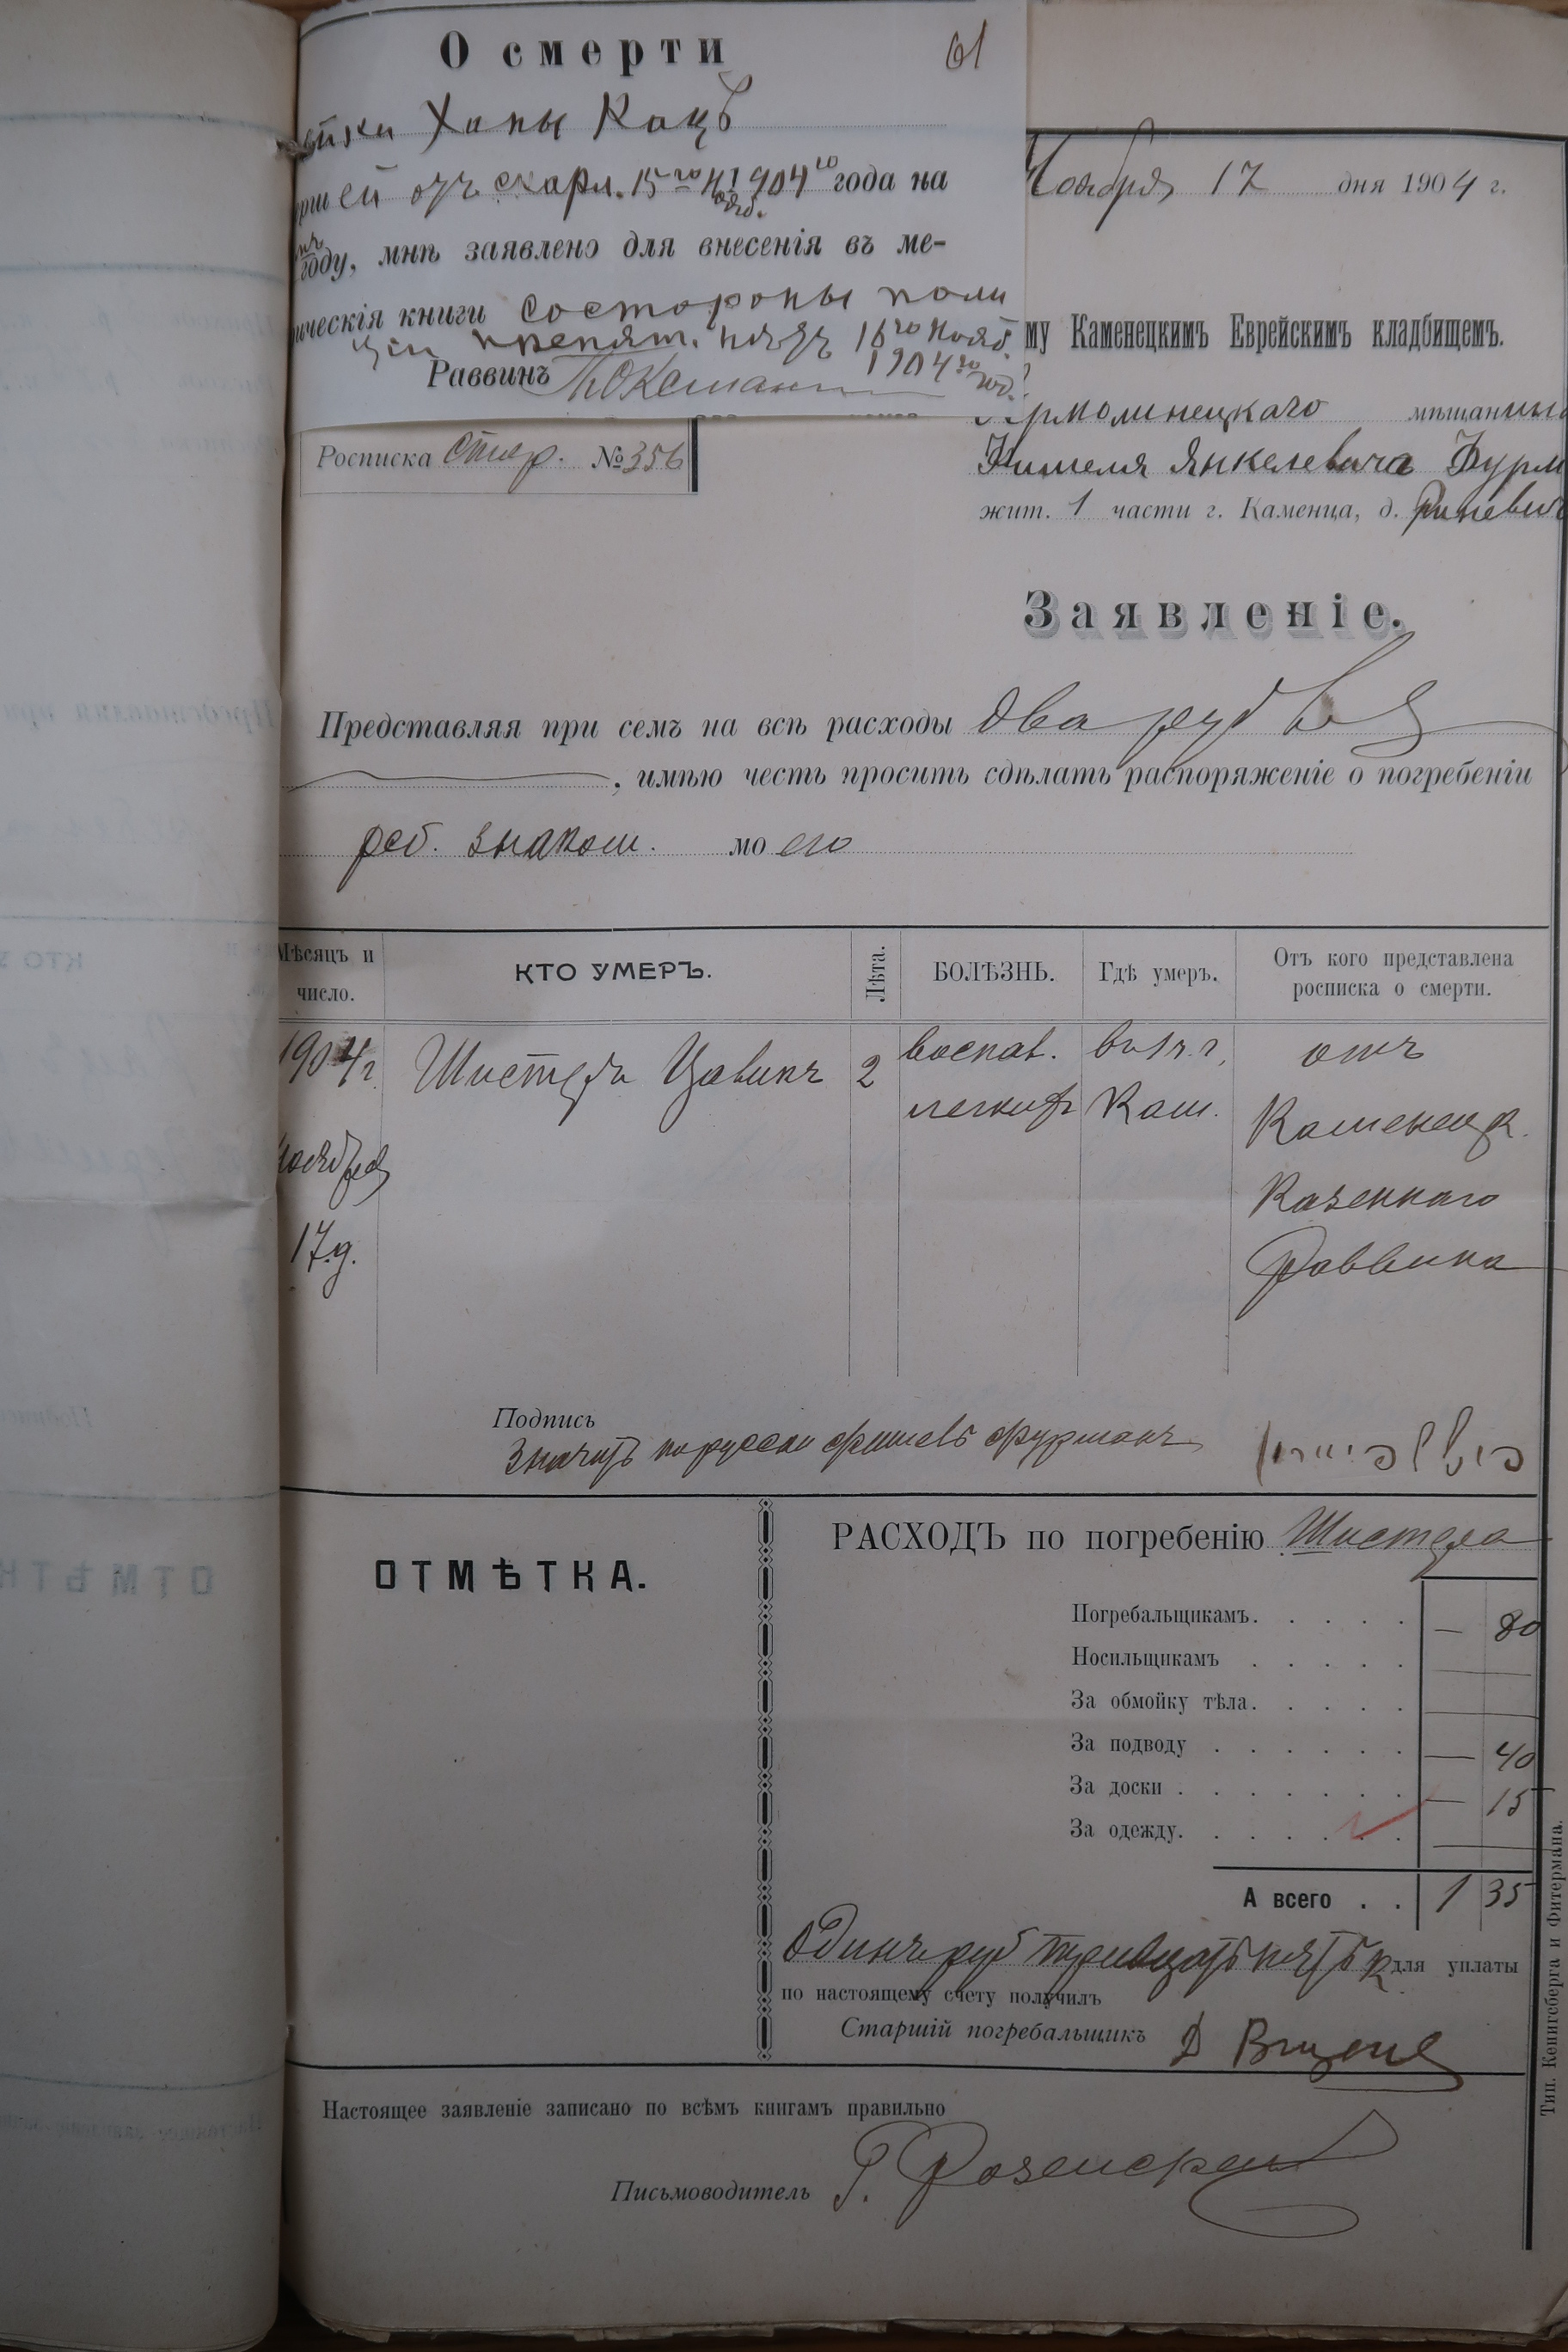 О смерти
61
Ханы Кацъ
ей отъ скарл. 15го Нояб. 1904го года на
году, мнѣ заявлено для внесенія въ ме-
рическія книги со стороны поли
ціи 16го Нояб.
1904го год.
Раввинъ
Ноября 17 дня 1904 г.
му Каменецкимъ Еврейскимъ кладбищемъ.
Росписка № 356
Ярмолинецкаго мѣщанина
Фишеля Янкелевича Фурм
жит. 1 части г. Каменца, д.
Заявленіе.
Представляя при семъ на всѣ расходы два рубля
, имѣю честь просить сдѣлать распоряженіе о погребеніи
реб. знаком. моего
Мѣсяцъ и число.
КТО УМЕРЪ.
Лѣта.
БОЛѢЗНЬ.
Гдѣ умеръ.
Отъ кого представлена росписка о смерти.
1904 г. ноября 17 д.
2
воспал. легкихъ
въ г. Кам.
отъ Каменецк. Казеннаго Раввина
Подпись
Значитъ по русски Фишель Фурманъ
ОТМѢТКА.
РАСХОДЪ по погребенію
Погребальщикамъ. — 80
Носильщикамъ —
За обмойку тѣла. —
За подводу — 40
За доски — 15
За одежду. —
А всего 1 35
Одинъ руб тридцать пять к для уплаты
по настоящему счету получилъ
Старшій погребальщикъ
Настоящее заявленіе записано по всѣмъ книгамъ правильно
Письмоводитель
Тип. Кенигсберга и Фитермана.